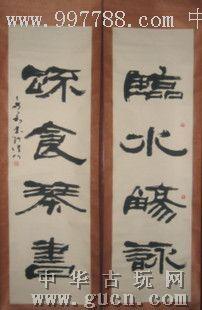 www.997788.com 中
臨水觴詠
疏食琴書
中华古玩网
www.gucn.com